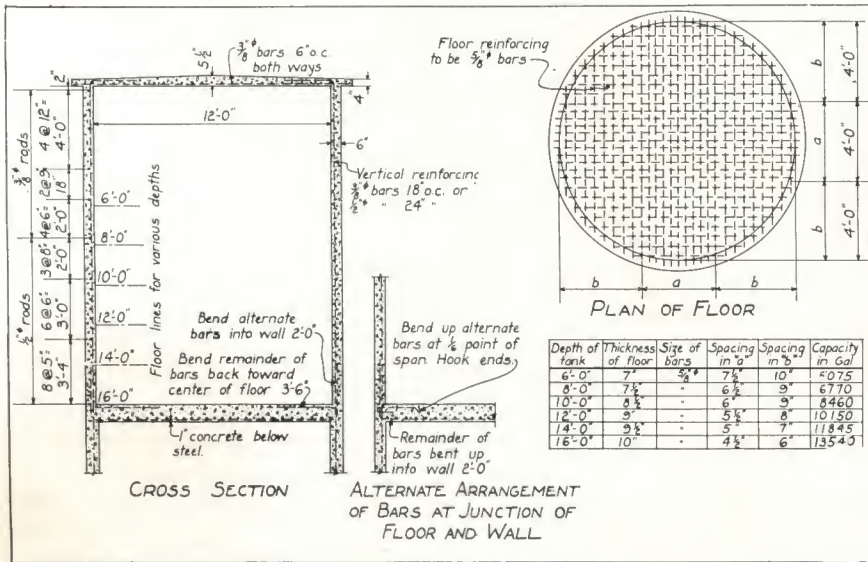 3/8"ᶲ bars 6" o.c.
both ways
5 1/2"
2"
4"
12'-0"
6"
3/8"ᶲ rods
4 @ 12"=
4'-0"
2@9=
18"
4@6"=
2'-0"
3@8"=
2'-0"
1/2"ᶲ rods
6@6"=
3'-0"
8@5"=
3'-4"
6'-0"
8'-0"
10'-0"
12'-0"
14'-0"
16'-0"
Floor lines for various depths
Vertical reinforcing
3/8"ᶲ bars 18" o.c. or
1/2"ᶲ " 24" "
Bend alternate
bars into wall 2'-0"
Bend remainder of
bars back toward
center of floor 3'-6"
1" concrete below
steel.
CROSS SECTION
Bend up alternate
bars at 1/6 point of
span. Hook ends.
Remainder of
bars bent up
into wall 2'-0"
ALTERNATE ARRANGEMENT
OF BARS AT JUNCTION OF
FLOOR AND WALL
Floor reinforcing
to be 5/8"ᶲ bars
b
a
b
4'-0"
4'-0"
4'-0"
b a b
PLAN OF FLOOR
Depth of tank Thickness of floor Size of bars Spacing in "a" Spacing in "b" Capacity in Gal
6'-0" 7" 5/8"ᶲ 7 1/2" 10" 5075
8'-0" 7 1/2" " 6 1/2" 9" 6770
10'-0" 8 1/2" " 6" 9" 8460
12'-0" 9" " 5 1/2" 8" 10150
14'-0" 9 1/2" " 5" 7" 11845
16'-0" 10" " 4 1/2" 6" 13540